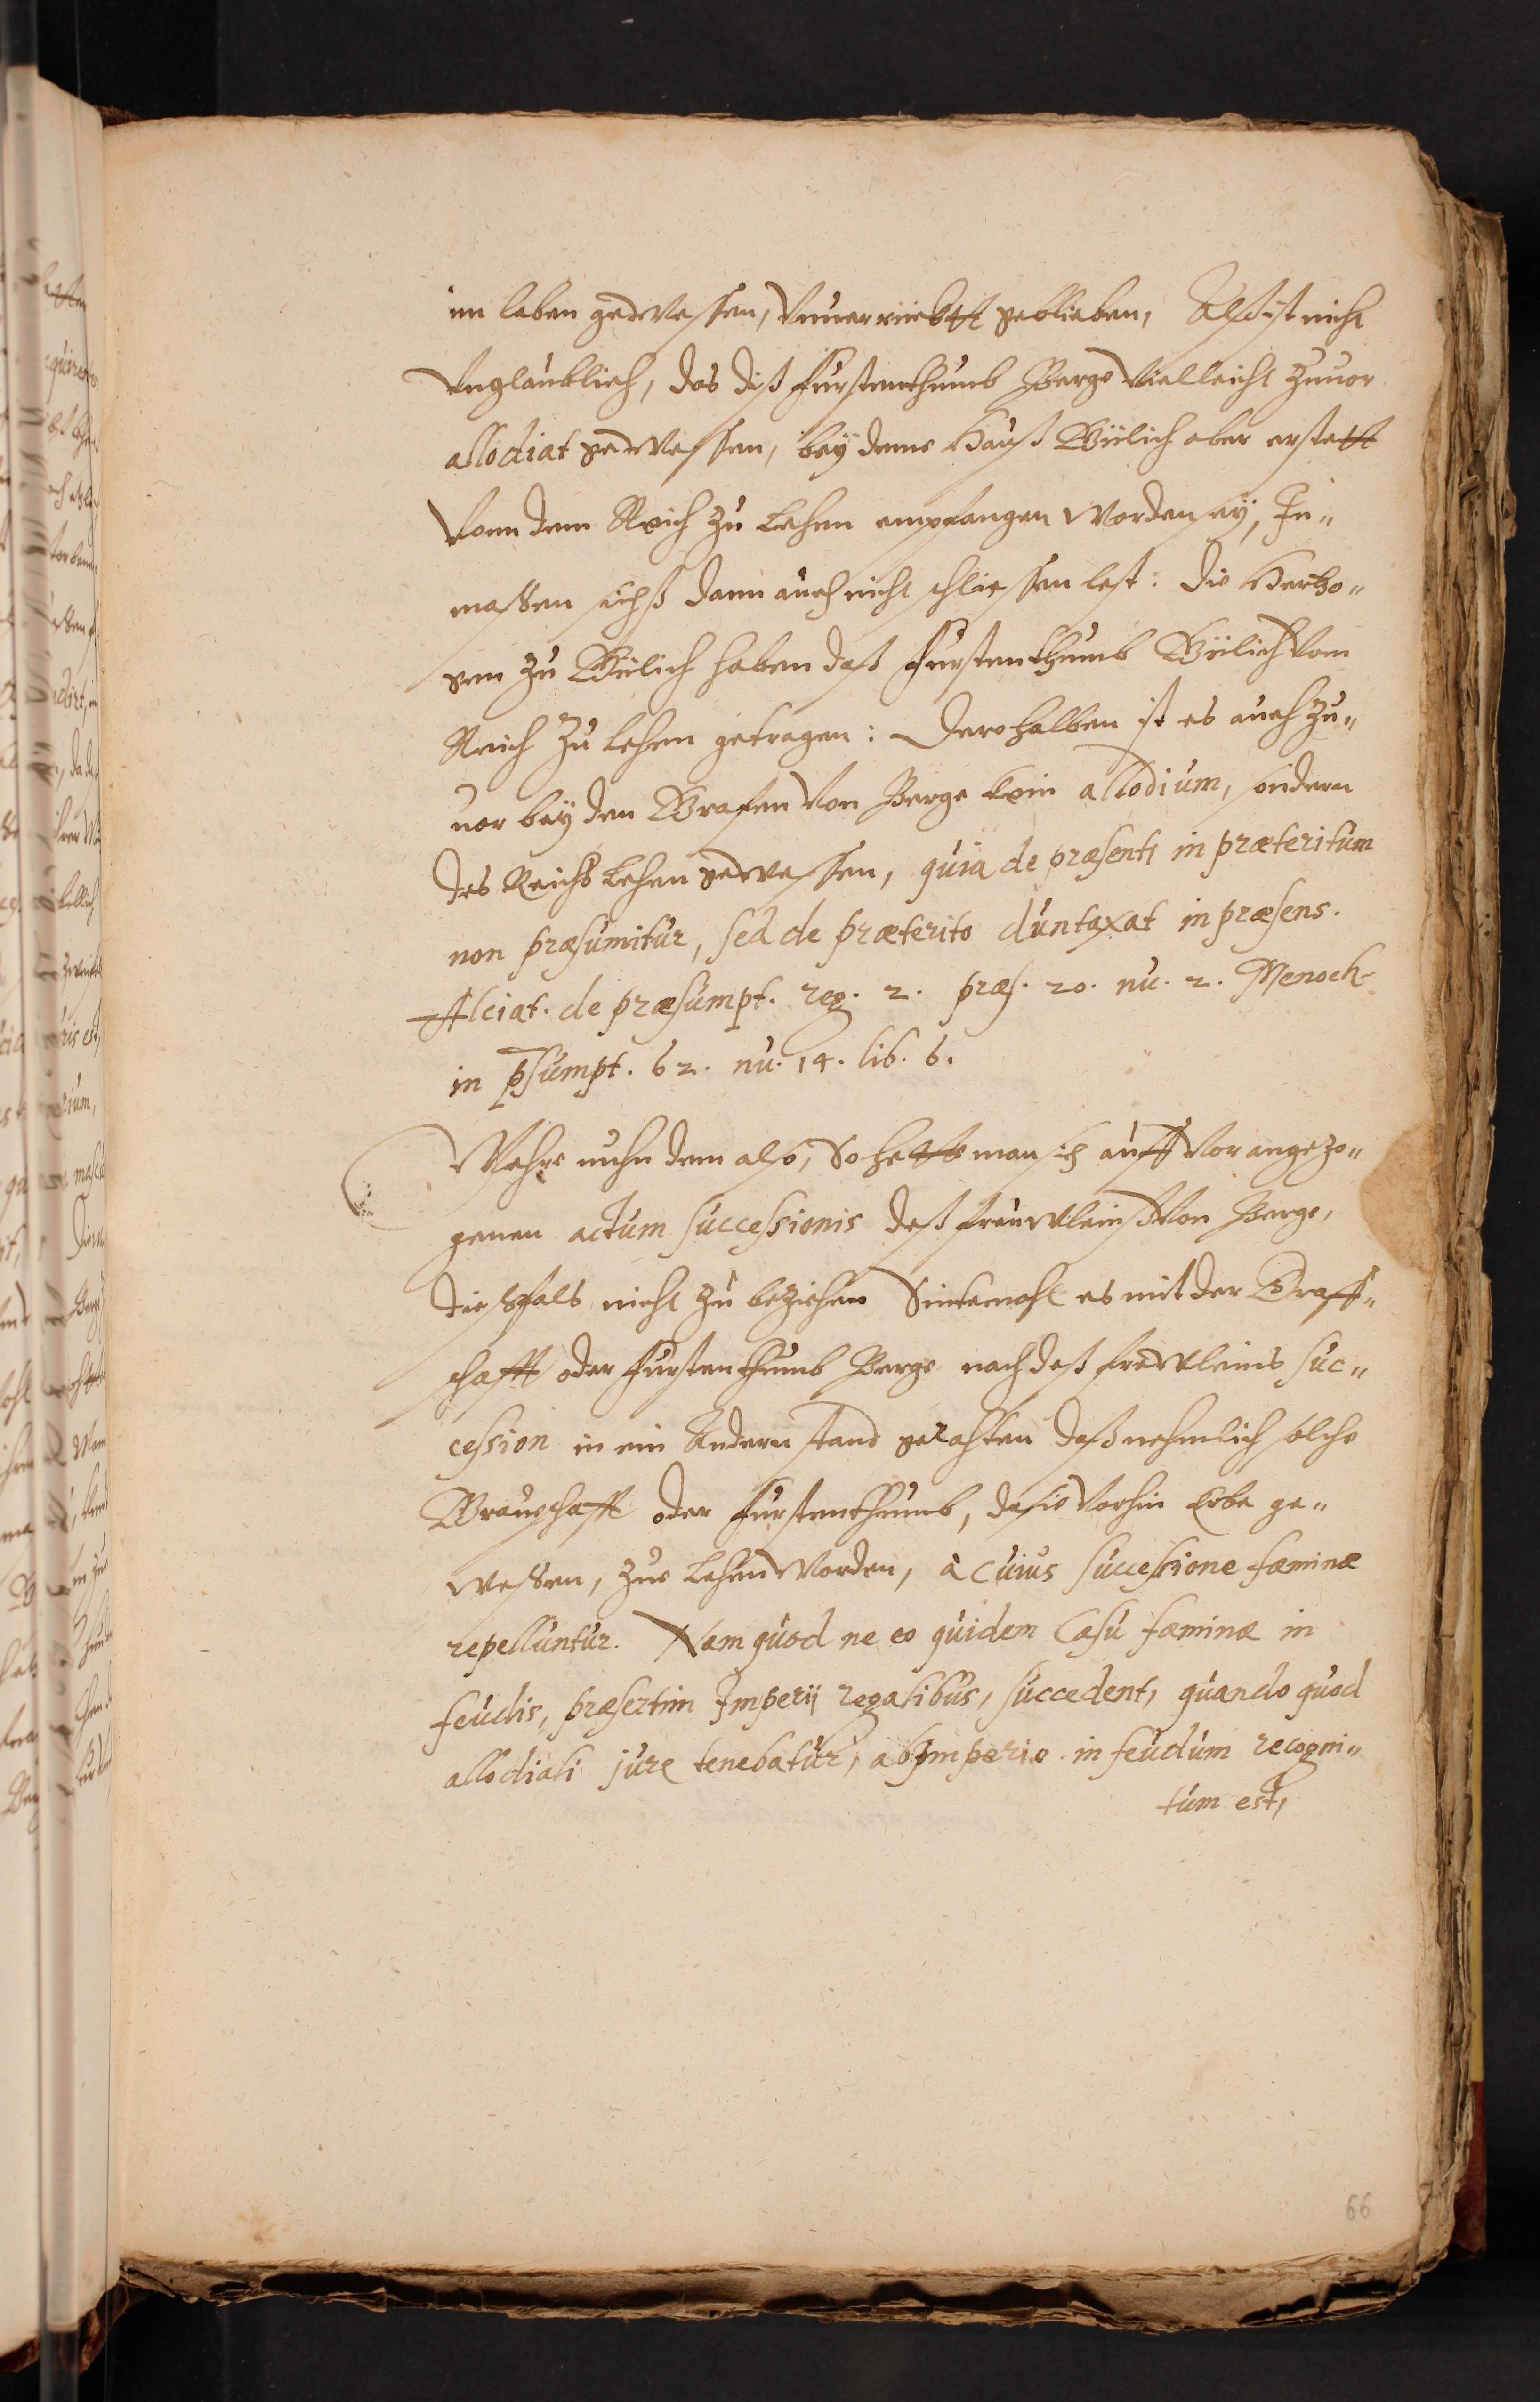 im leben gewessen, Vnuerrückt geblieben, Alß ist nicht
Vnglaublich, das diß Furstenthumb Berge Vielleicht zuuor
allodiat gewessen, beÿ deme Hauß Gülich aber erstett
Vonn dem Reich zu Lehen empfangen worden seÿ, In„
massen sichs dann auch nicht schliessen lest: Die Hertzo„
gen zu Gülich haben daß Furstenthumb Gülich Vom
Reich zu lehen getragen: Derohalben ist es auch zu„
uor beÿ den Grafen Von Berge kein allodium, sondern
des Reichs Lehen gewessen, quia de præsenti in præteritum
non præsumitur, sed de præterito duntaxat in præsens.
Alciat. de præsumpt. reg. 2. præs. 20. nu. 2. Menoch.
in p̄sumpt. 62. nu. 14. lib. 6.
Wehre nuhn dem also, So hette man sich auff Vor angezo„
genen actum successionis deß freuwleinß Von Berge,
dießfals nicht zu beziehen Sintemahl es mit der Graff„
schafft oder Furstenthumb Berge nach deß frewleins suc„
cession in ein Andern stand gerahten daß nehmlich solche
Graueschafft oder Furstenthumb, da sie Vorhin Erbe ge„
wessen, zue Lehen worden, à cuius successione fæminæ
repelluntur. Nam quod ne eo quidem Casu fæminæ in
feudis, præsertim Imperij regalibus, succedent, quando quod
allodiali jure tenebatur, ab Imperio in feudum recogni„
tum est,
66